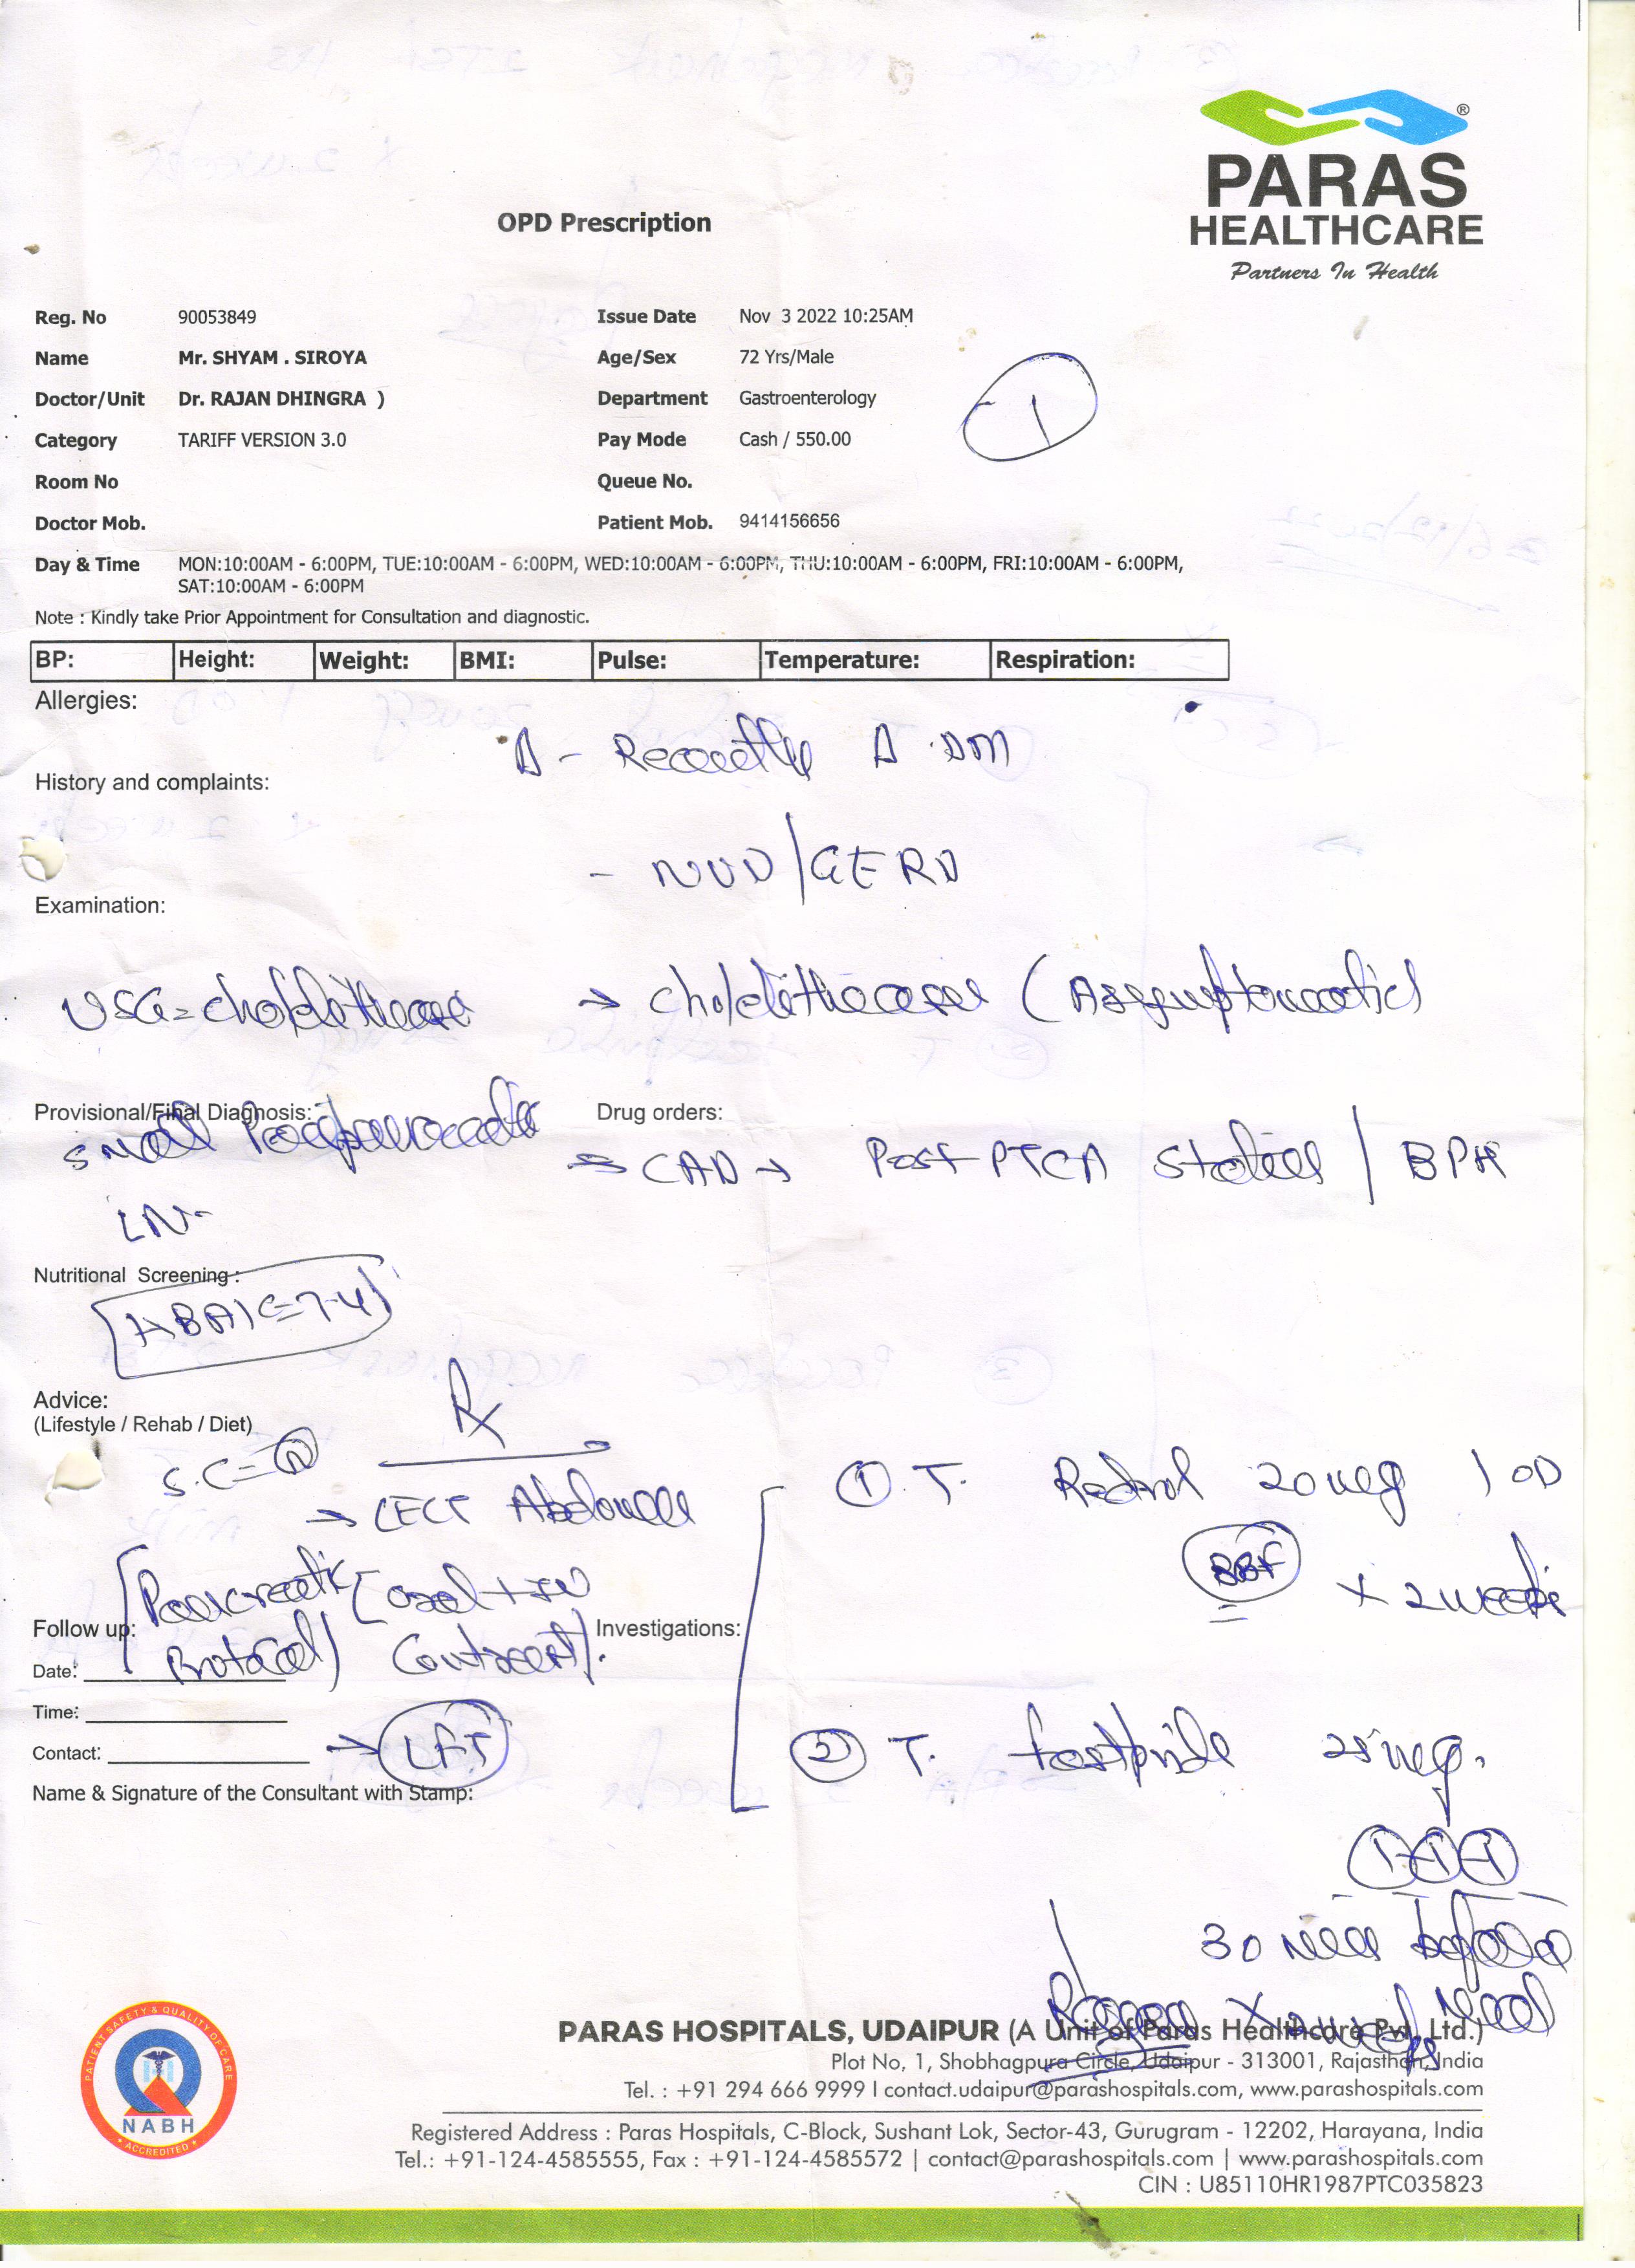 PARAS
HEALTHCARE
Partners In Health
OPD Prescription
Reg. No 90053849 Issue Date Nov 3 2022 10:25AM
Name Mr. SHYAM . SIROYA Age/Sex 72 Yrs/Male
Doctor/Unit Dr. RAJAN DHINGRA ) Department Gastroenterology
1
Category TARIFF VERSION 3.0 Pay Mode Cash / 550.00
Room No Queue No.
Doctor Mob. Patient Mob. 9414156656
Day & Time MON:10:00AM - 6:00PM, TUE:10:00AM - 6:00PM, WED:10:00AM - 6:00PM, THU:10:00AM - 6:00PM, FRI:10:00AM - 6:00PM,
SAT:10:00AM - 6:00PM
Note : Kindly take Prior Appointment for Consultation and diagnostic.
BP: Height: Weight: BMI: Pulse: Temperature: Respiration:
Allergies:
Δ - Recently Δ DM
History and complaints:
- NUD/GERD
Examination:
USG = → (Asymptomatic)
Provisional/Final Diagnosis: Drug orders:
small
→ CAD → Post PTCA Status / BPH
LN
Nutritional Screening :
HBA1C=7.4
Advice:
(Lifestyle / Rehab / Diet)
Rx
S.C = N
→ CECT Abdomen
(Pancreatic [oral + IV
Protocol) Contrast].
① T. 20 mg 1 OD
BBF x 2 weeks
Follow up: Investigations:
Date:
Time:
Contact:
→ LFT
② T. 25 mg.
1-1-1
30 min before
meal
x 2 weeks
Name & Signature of the Consultant with Stamp:
PATIENT SAFETY & QUALITY OF CARE
NABH
ACCREDITED
PARAS HOSPITALS, UDAIPUR (A Unit of Paras Healthcare Pvt. Ltd.)
Plot No, 1, Shobhagpura Circle, Udaipur - 313001, Rajasthan, India
Tel. : +91 294 666 9999 I contact.udaipur@parashospitals.com, www.parashospitals.com
Registered Address : Paras Hospitals, C-Block, Sushant Lok, Sector-43, Gurugram - 12202, Harayana, India
Tel.: +91-124-4585555, Fax : +91-124-4585572 | contact@parashospitals.com | www.parashospitals.com
CIN : U85110HR1987PTC035823